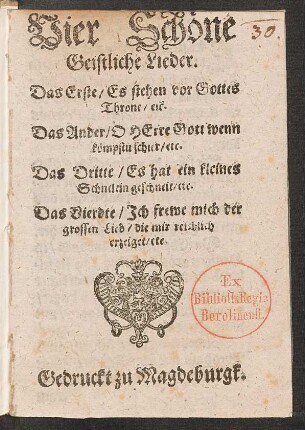 Vier Schöne
30.
Geistliche Lieder.
Das Erste / Es stehen vor Gottes
Throne / etc.
Das Ander / O HErre Gott wenn
kömpstu schier / etc.
Das Dritte / Es hat ein kleines
Schneelin geschneit / etc.
Das Vierdte / Ich frewe mich der
grossen Lieb / die mir reichlich
erzeiget / etc.
Ex
Biblioth. Regia
Berolinensi.
Gedruckt zu Magdeburgk.